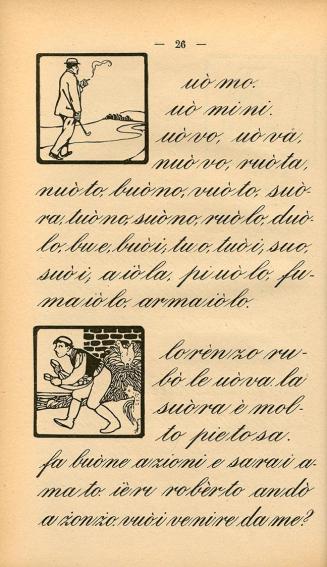 — 26 —
uò mo.
uò mi ni.
uò vo, uò va,
nuò vo, ruò ta,
nuò to, buò no, vuò to, suò-
ra, tuò no, suò no, ruò lo, duò-
lo, bu e, buò i, tu o, tuò i, suo,
suò i, a iò la, pi uò lo, fu-
ma iò lo, ar ma iò lo.
lo rèn zo ru-
bò le uò va. la
suò ra è mol-
to pie to sa.
fa buò ne a zio ni e sa rai a-
ma to. iè ri ro bèr to an dò
a zon zo. vuò i ve ni re da me?